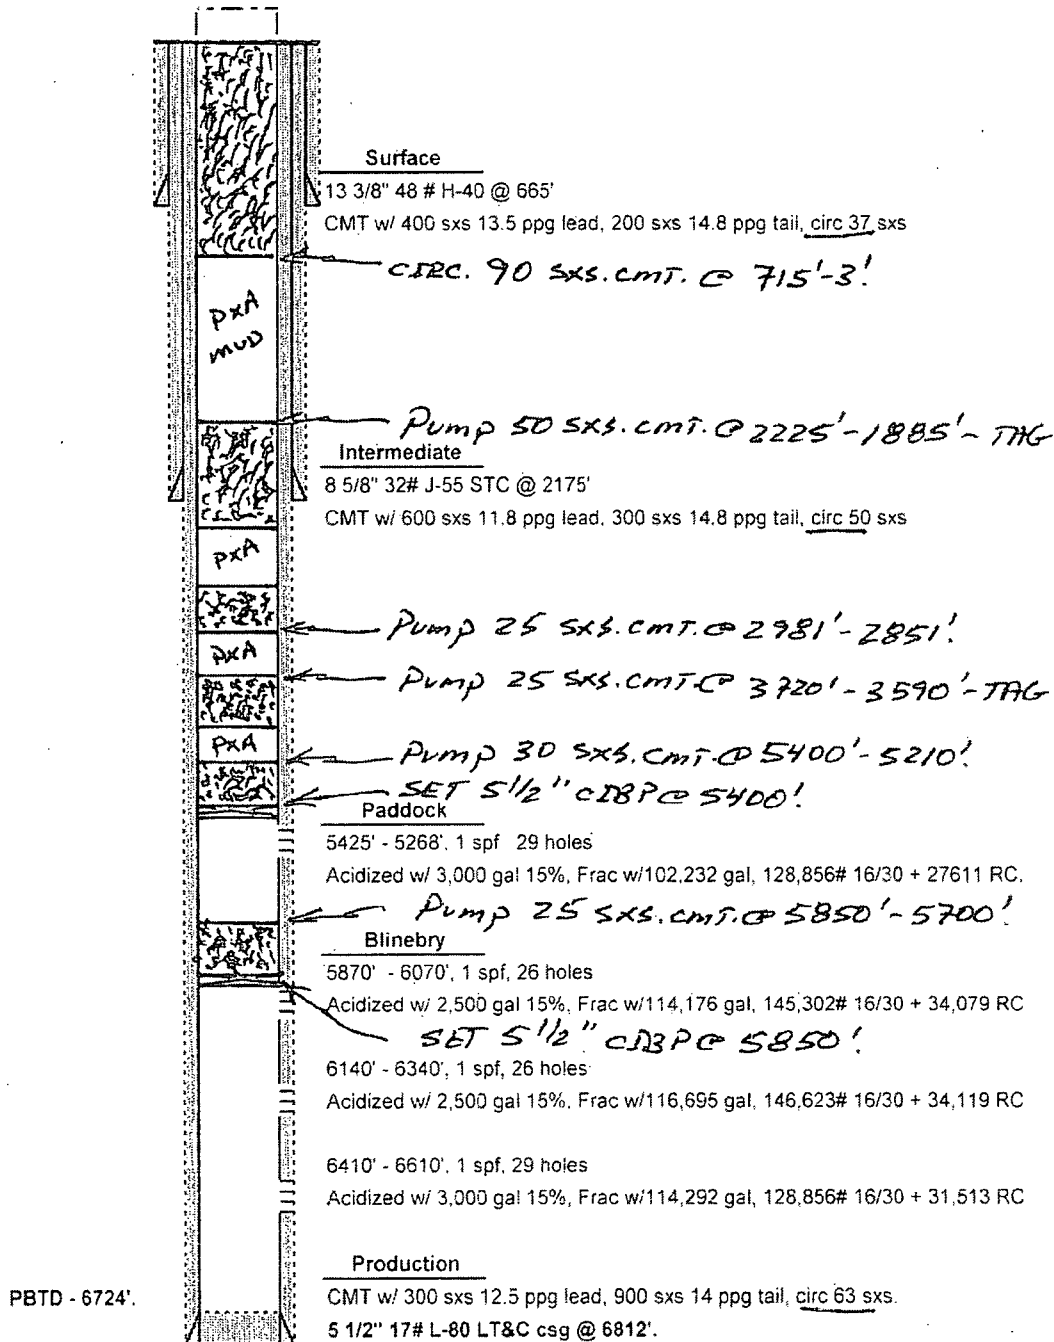 Surface
13 3/8" 48 # H-40 @ 665'
CMT w/ 400 sxs 13.5 ppg lead, 200 sxs 14.8 ppg tail, circ 37 sxs
CIRC. 90 SXS. CMT. @ 715'-3'.
PXA
MUD
Pump 50 SXS. CMT. @ 2225'-1885'- TAG
Intermediate
8 5/8" 32# J-55 STC @ 2175'
CMT w/ 600 sxs 11.8 ppg lead, 300 sxs 14.8 ppg tail, circ 50 sxs
PXA
Pump 25 SXS. CMT. @ 2981'-2851'.
PXA
Pump 25 SXS. CMT @ 3720'-3590'-TAG
PXA
Pump 30 SXS. CMT. @ 5400'-5210'.
SET 5 1/2" CIBP @ 5400'.
Paddock
5425' - 5268', 1 spf 29 holes
Acidized w/ 3,000 gal 15%, Frac w/102,232 gal, 128,856# 16/30 + 27611 RC.
Pump 25 SXS. CMT. @ 5850'-5700'.
Blinebry
5870' - 6070', 1 spf, 26 holes
Acidized w/ 2,500 gal 15%, Frac w/114,176 gal, 145,302# 16/30 + 34,079 RC
SET 5 1/2" CIBP @ 5850'.
6140' - 6340', 1 spf, 26 holes
Acidized w/ 2,500 gal 15%, Frac w/116,695 gal, 146,623# 16/30 + 34,119 RC
6410' - 6610', 1 spf, 29 holes
Acidized w/ 3,000 gal 15%, Frac w/114,292 gal, 128,856# 16/30 + 31,513 RC
Production
PBTD - 6724'.
CMT w/ 300 sxs 12.5 ppg lead, 900 sxs 14 ppg tail, circ 63 sxs.
5 1/2" 17# L-80 LT&C csg @ 6812'.